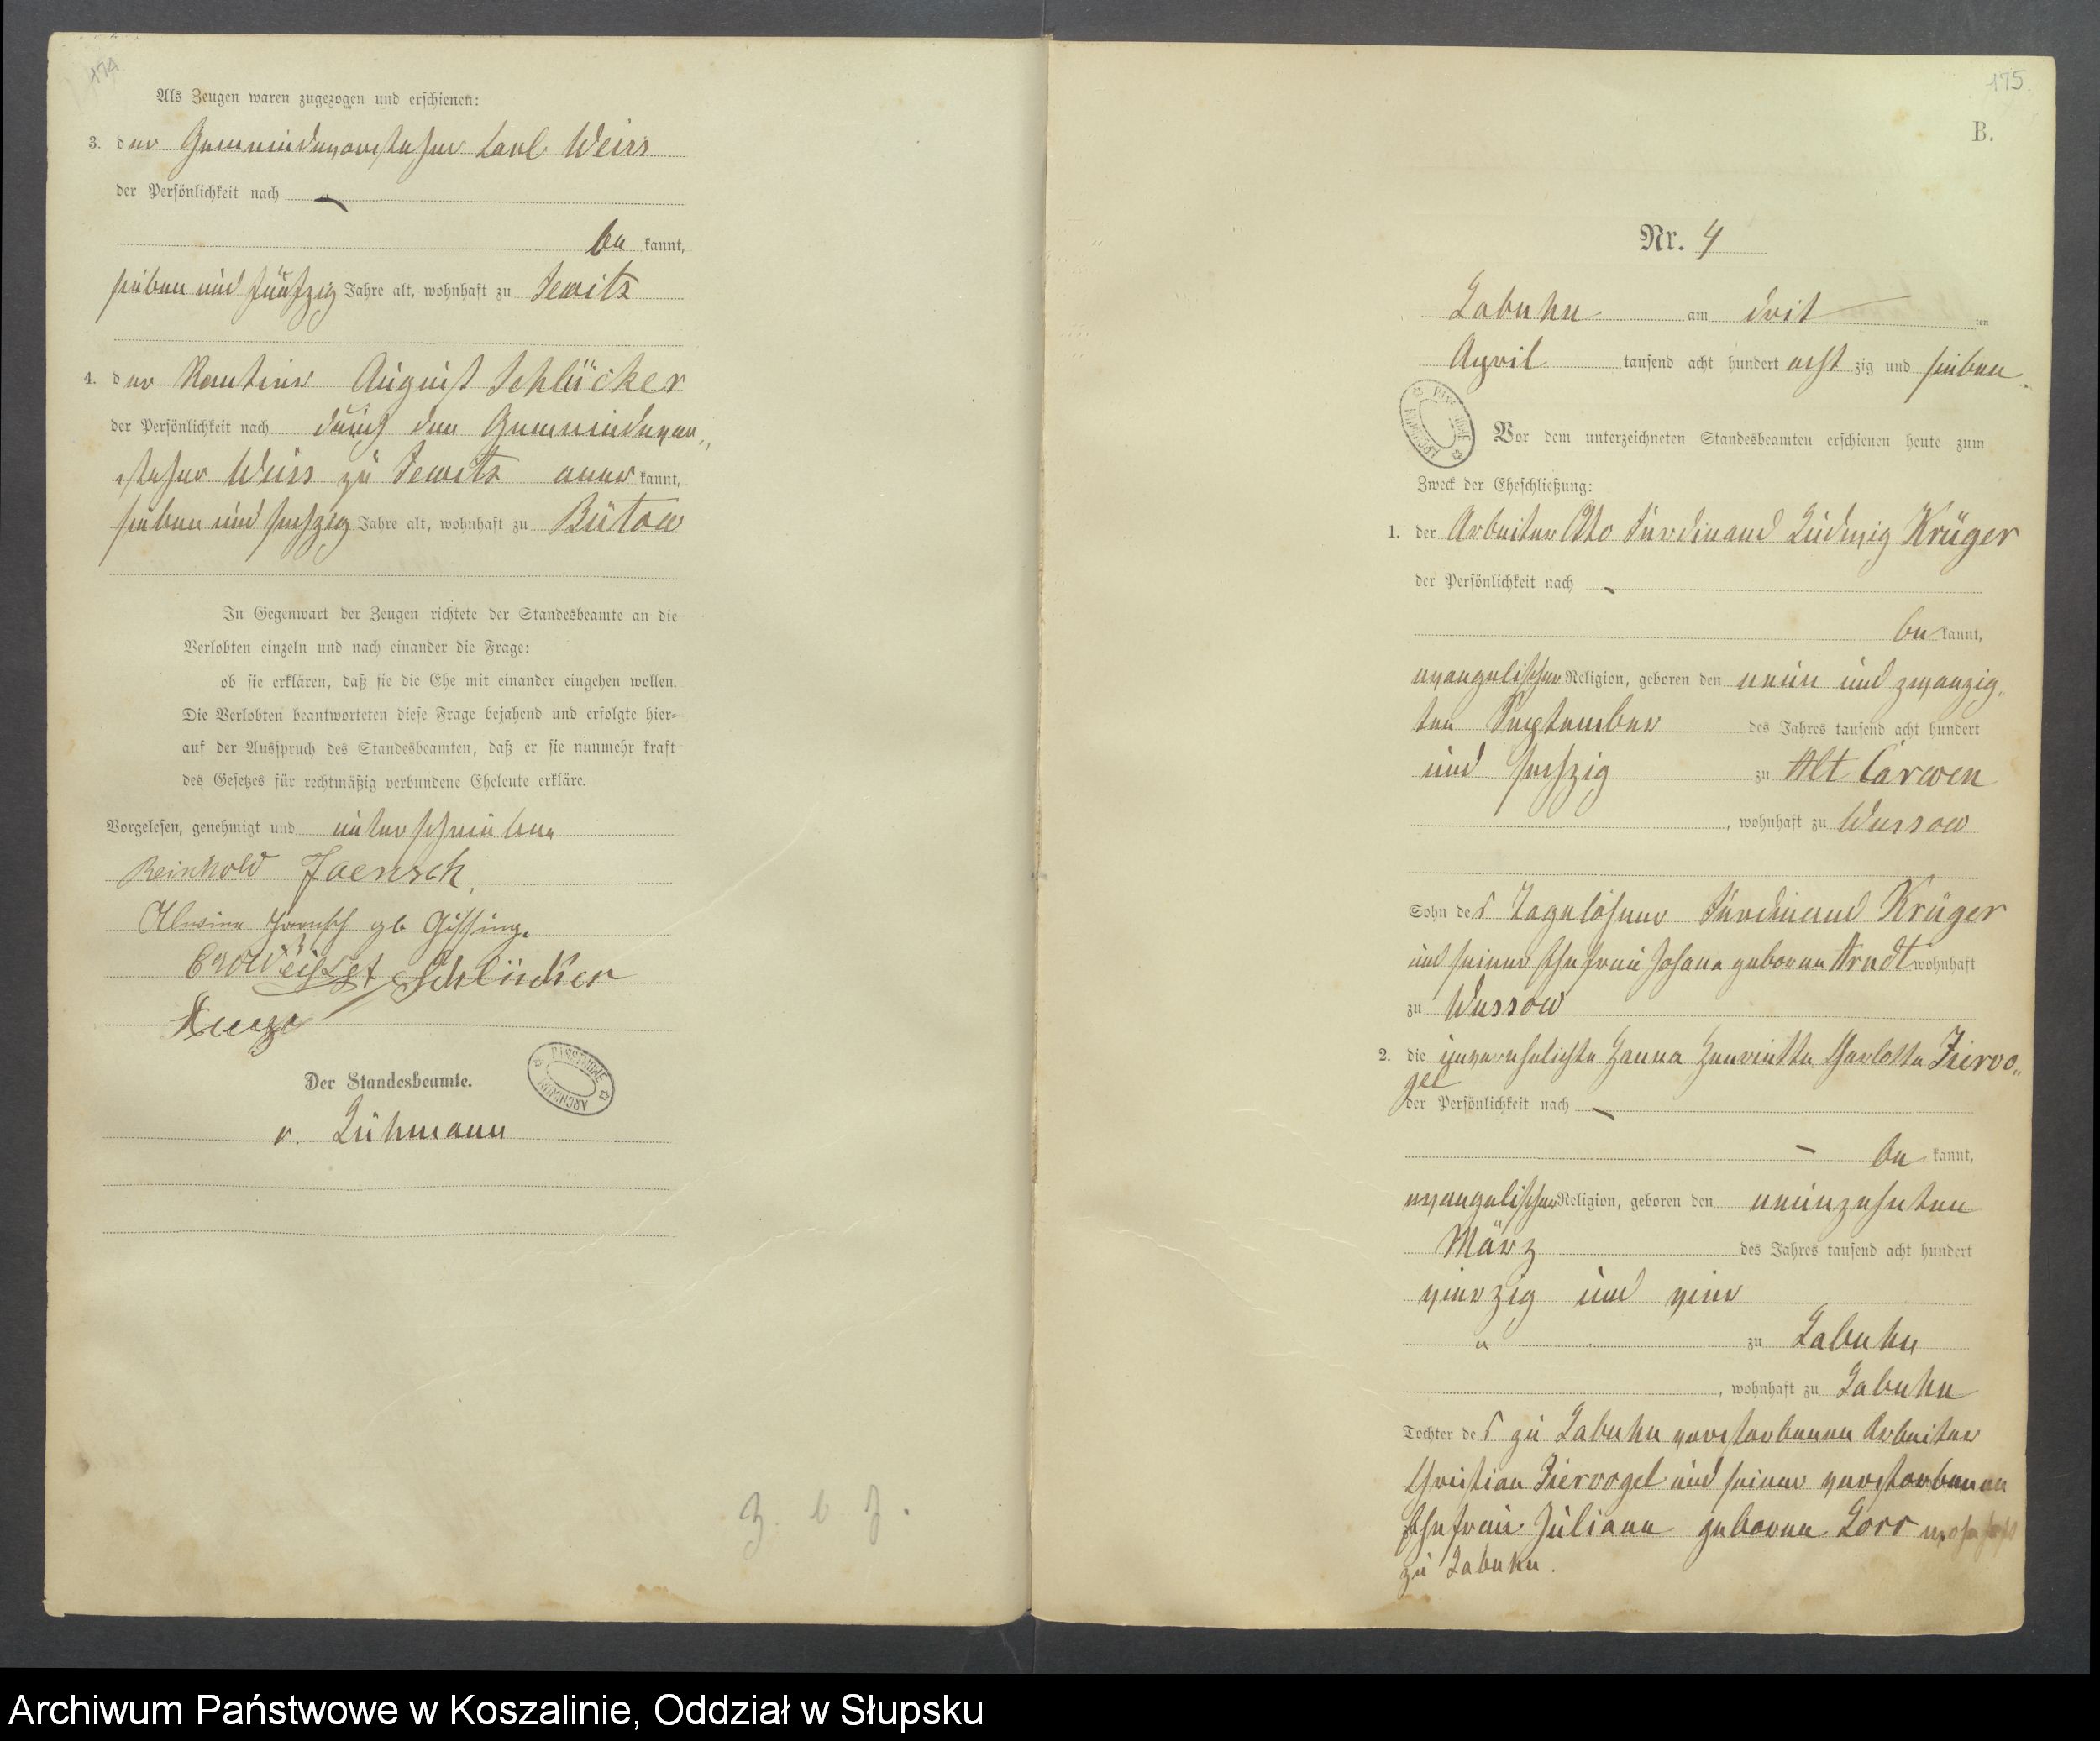 174
Als Zeugen waren zugezogen und erschienen:
3. der Gemeindevorsteher Carl Weiss
der Persönlichkeit nach
be kannt,
sieben und fünfzig Jahre alt, wohnhaft zu Jewitz
4. der Rentier August Schlücker
der Persönlichkeit nach durch den Gemeindevor-
steher Weiss zu Jewitz aner kannt,
sieben und sechzig Jahre alt, wohnhaft zu Bütow
In Gegenwart der Zeugen richtete der Standesbeamte an die
Verlobten einzeln und nach einander die Frage:
ob sie erklären, daß sie die Ehe mit einander eingehen wollen.
Die Verlobten beantworteten diese Frage bejahend und erfolgte hier-
auf der Ausspruch des Standesbeamten, daß er sie nunmehr kraft
des Gesetzes für rechtmäßig verbundene Eheleute erkläre.
Vorgelesen, genehmigt und unterschrieben
Reinhold Jaensch
Alwine Jaensch gb Gissing.
Schlücker
Der Standesbeamte.
v. Lühmann
Z. b. Z.
175.
B.
Nr. 4
Labuhn am drit ten
April tausend acht hundert acht zig und sieben.
Vor dem unterzeichneten Standesbeamten erschienen heute zum
Zweck der Eheschließung:
1. der Arbeiter Otto Ferdinand Ludwig Krüger
der Persönlichkeit nach
be kannt,
evangelischer Religion, geboren den neun und zwanzig-
ten September des Jahres tausend acht hundert
und sechzig zu Alt Carwen
, wohnhaft zu Wussow
Sohn des Tagelöhner Ferdinand Krüger
und seiner Ehefrau Johana geborene Arndt wohnhaft
zu Wussow
2. die unverehelichte Hanna Henriette Charlotte Ziervo-
gel
der Persönlichkeit nach
be kannt,
evangelischer Religion, geboren den neunzehnten
März des Jahres tausend acht hundert
vierzig und vier
zu Labuhn
, wohnhaft zu Labuhn
Tochter des zu Labuhn verstorbenen Arbeiter
Christian Ziervogel und seiner verstorbenen
Ehefrau Juliane geborene Lorr wohnhaft
zu Labuhn.
ARCHIWUM PAŃSTWOWE
ARCHIWUM PAŃSTWOWE
Archiwum Państwowe w Koszalinie, Oddział w Słupsku